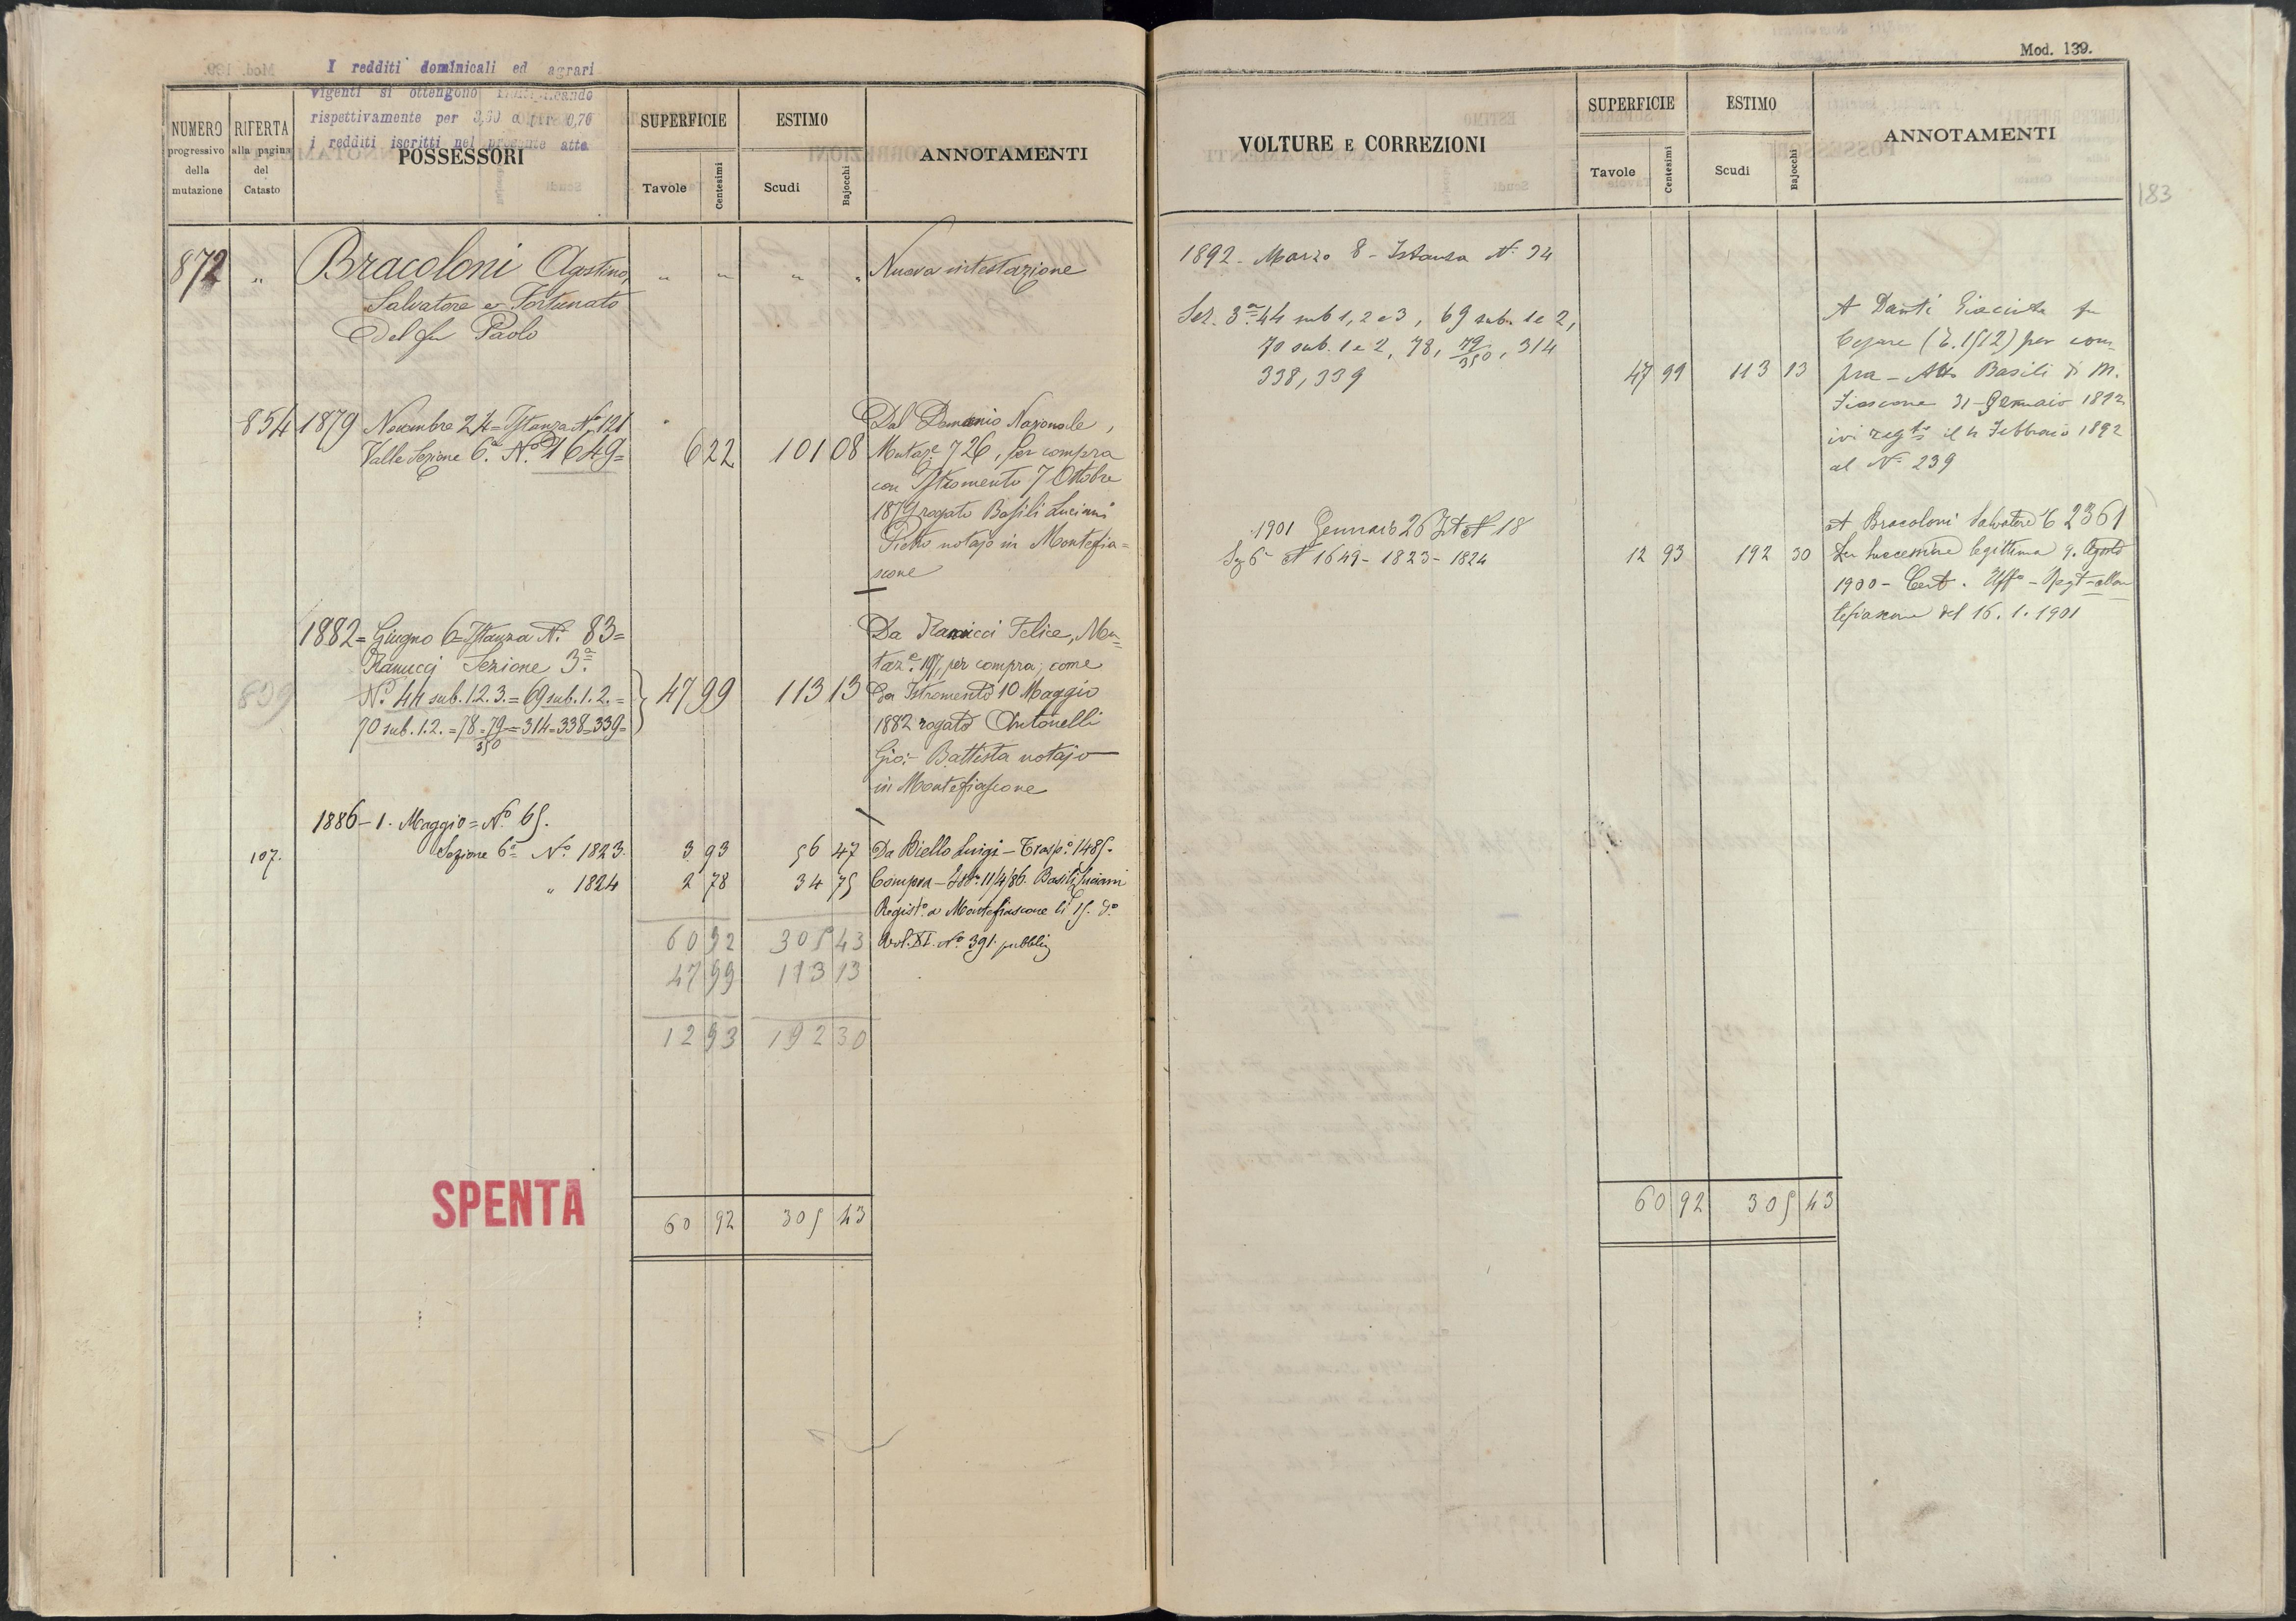 I redditi dominicali ed agrari
vigenti si ottengono moltiplicando
rispettivamente per 3,60 0,70
i redditi iscritti nel presente atto
NUMERO progressivo della mutazione
RIFERTA alla pagina del Catasto
POSSESSORI
SUPERFICIE
Tavole Centesimi
ESTIMO
Scudi Bajocchi
ANNOTAMENTI
872 " Bracoloni Agostino, " " " " Nuova intestazione
Salvatore e Fortunato
Del fu Paolo
854 1879 Novembre 24 = Istanza N.º 121
Valle Sezione 6.ª N.º 1649 = 6 22 101 08
Dal Demanio Nazionale,
Mutaz.e 726, per compra
con Istromento 7 Ottobre
1879 rogato Basili Luciani
Pietro notajo in Montefia=
scone
1882 = Giugno 6 = Istanza N.º 83 =
Ranucci Sezione 3.ª
839 N.º 44 sub. 1.2.3. = 69 sub. 1.2. =
70 sub. 1.2. = 78 = 79/350 = 314 = 338 = 339 =
47 99 113 13
Da Ranucci Felice, Mu=
taz.e 197, per compra, come
Da Istromento 10 Maggio
1882 rogato Antonelli
Gio: Battista notajo
in Montefiascone
1886 - 1. Maggio = N.º 65.
107. Sezione 6.ª N.º 1823. 3 93 56 47
" 1824 2 78 34 75
Da Biello Luigi - Trasp.º 1485.
Compra - Istr. 11/4/86. Basili Luciani
Regist.º a Montefiascone li 15. d.º
Vol. XI. N.º 391. pubblici
60 92 305 43
47 99 113 13
12 93 192 30
SPENTA
60 92 305 43
Mod. 139.
183
VOLTURE E CORREZIONI
SUPERFICIE
Tavole Centesimi
ESTIMO
Scudi Bajocchi
ANNOTAMENTI
1892 - Marzo 8 - Istanza N. 34
Sez. 3.ª 44 sub 1, 2 e 3, 69 sub. 1 e 2,
70 sub. 1 e 2, 78, 79/350, 314
338, 339 47 99 113 13
A Danti Giacinta fu
Cesare (T. 1512) per com=
pra - Atto Basili di M.
Fiascone 31 Gennaio 1892
ivi reg.to il 4 Febbraio 1892
al N. 239
1901 Gennaio 26 Ist N 18
Sez 6ª N 1649 - 1823 - 1824 12 93 192 30
A Bracoloni Salvatore T 2361
Per successione legittima 9. Agosto
1900 - Cert. Uff.º - Regt - Mon
tefiascone del 16. 1. 1901
60 92 305 43